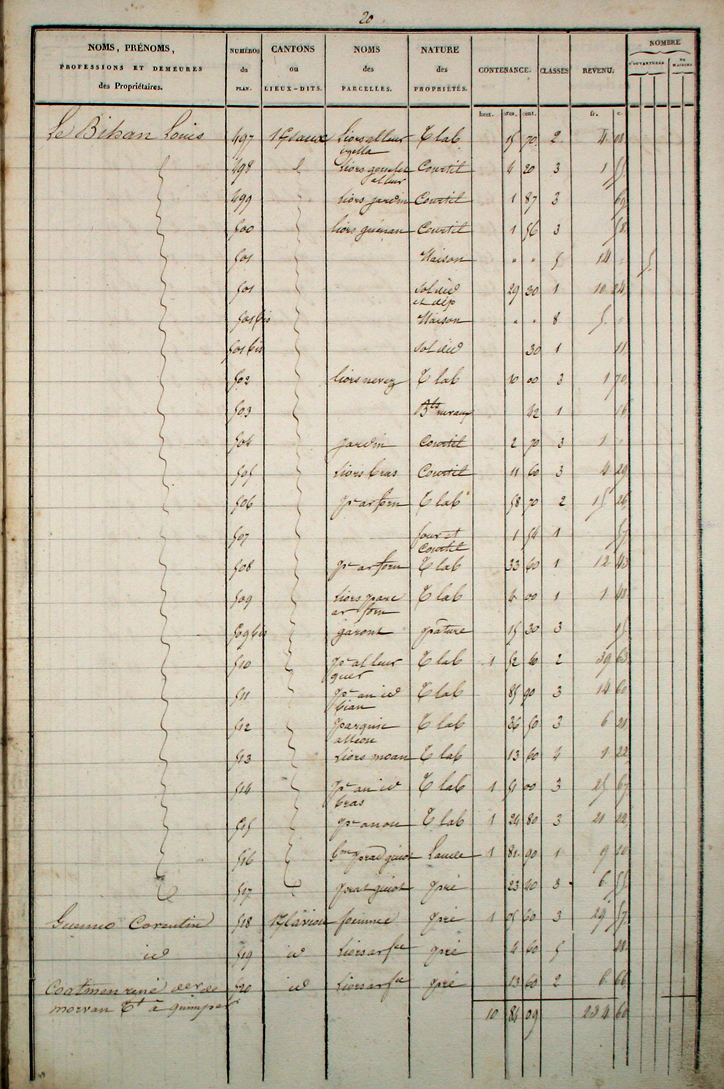 20
NOMS, PRÉNOMS, PROFESSIONS ET DEMEURES des Propriétaires. NUMÉROS du PLAN. CANTONS ou LIEUX-DITS. NOMS des PARCELLES. NATURE des PROPRIÉTÉS. CONTENANCE. CLASSES REVENU. NOMBRE
hect. ares. cent. fr. c.
Le Bihan Louis 497 liors al leur T lab 15 70 2 4
izella
498 liors Courtil 4 20 3 1
al leur
499 liors jardin Courtil 1 87 3
500 liors guinan Courtil 1 56 3
501 Maison " " 5 14
501 sol id 29 30 1 10 24
et dép
501 bis Maison " " 8 5
501 bis sol id 30 1 11
502 liors nevez T lab 10 00 3 1 70
503 Bts ruraux 42 1 16
504 jardin Courtil 2 70 3 1
505 liors bras Courtil 11 60 3 4 29
506 pc ar forn T lab 58 70 2 15 26
507 four et 1 54 1 57
Courtil
508 pc ar forn T lab 33 60 1 12 43
509 liors parc T lab 6 00 1 1 41
ar forn
509 bis garont pature 15 30 3 15
510 pc al leur T lab 1 52 40 2 39 63
guer
511 pc an id T lab 85 90 3 14 60
bian
512 parquic T lab 36 50 3 6 21
513 liors moan T lab 13 60 4 1 22
514 pc an id T lab 1 51 00 3 25 67
bras
515 pc anou T lab 1 24 80 3 21 22
516 prad guiot lande 1 81 90 1 9 10
517 prat guiot pré 23 40 3 6 55
Guenno Corentin 518 pré 1 05 60 3 29 57
id 519 id liors ar pré 4 60 5
Coatmen rené 520 id liors ar pré 13 60 2 6 66
morvan à quimper
10 84 09 234 60